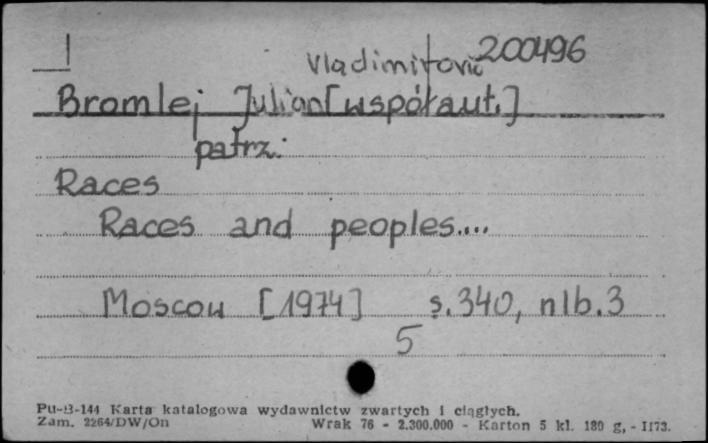 200496
Vladimirovič
Bromlej Julian [współaut.]
patrz:
Races
Races and peoples....
Moscow [1974] s.340, nlb.3
5
Pu-B-144 Karta katalogowa wydawnictw zwartych i ciągłych.
Zam. 2264/DW/On Wrak 76 - 2.300.000 - Karton 5 kl. 180 g, - II73.